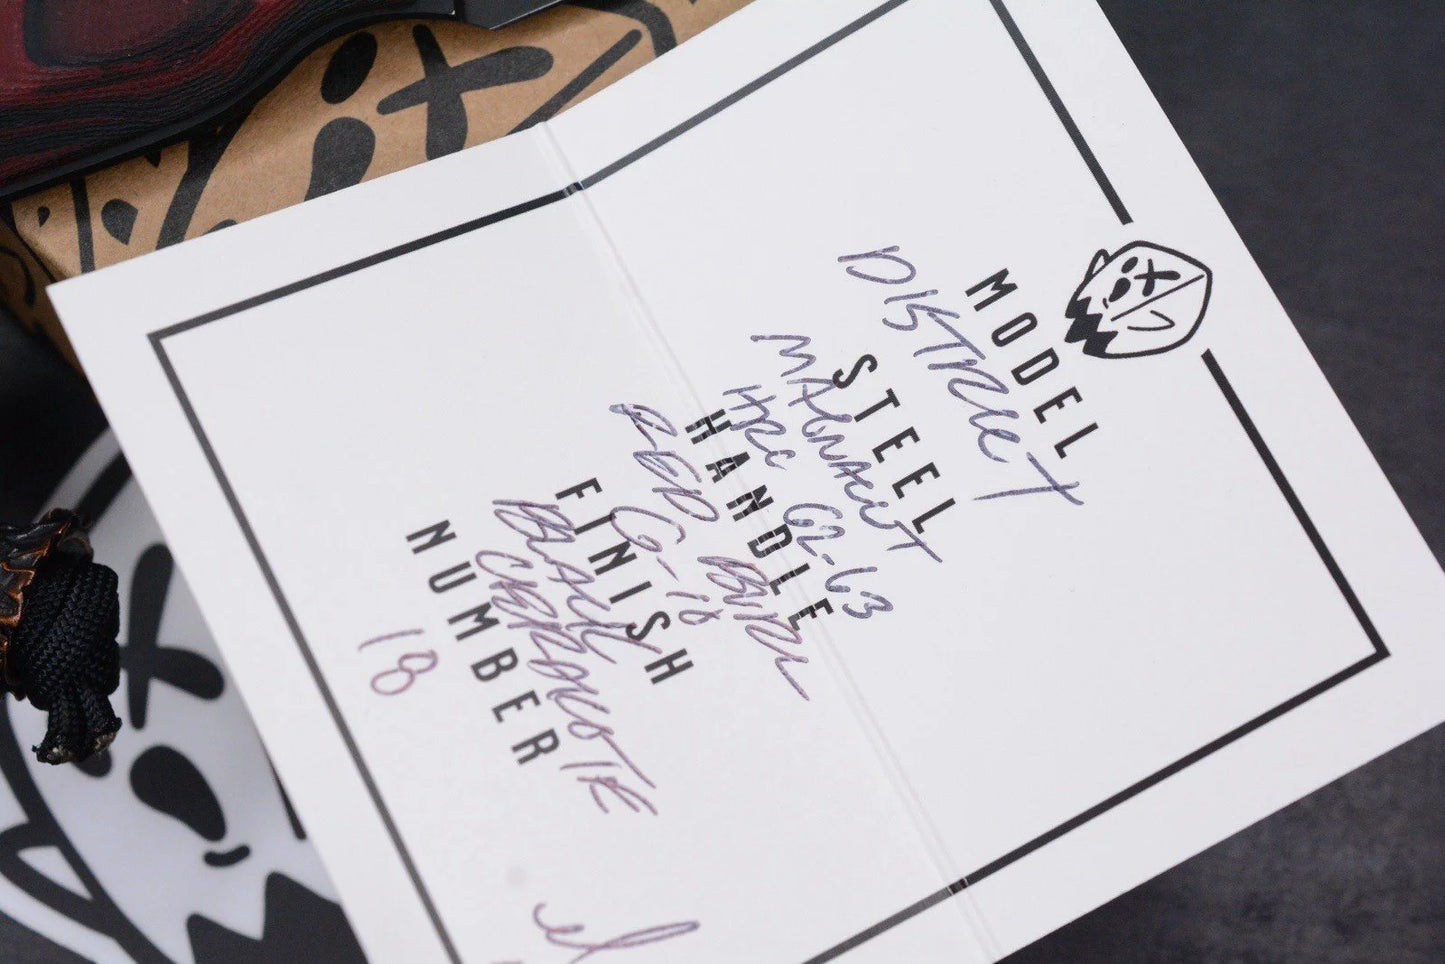 MODEL
DISTRICT
STEEL
MAGNACUT
HRC 62-63
HANDLE
RED BURL
G-10
FINISH
BLACK
CERAKOTE
NUMBER
18